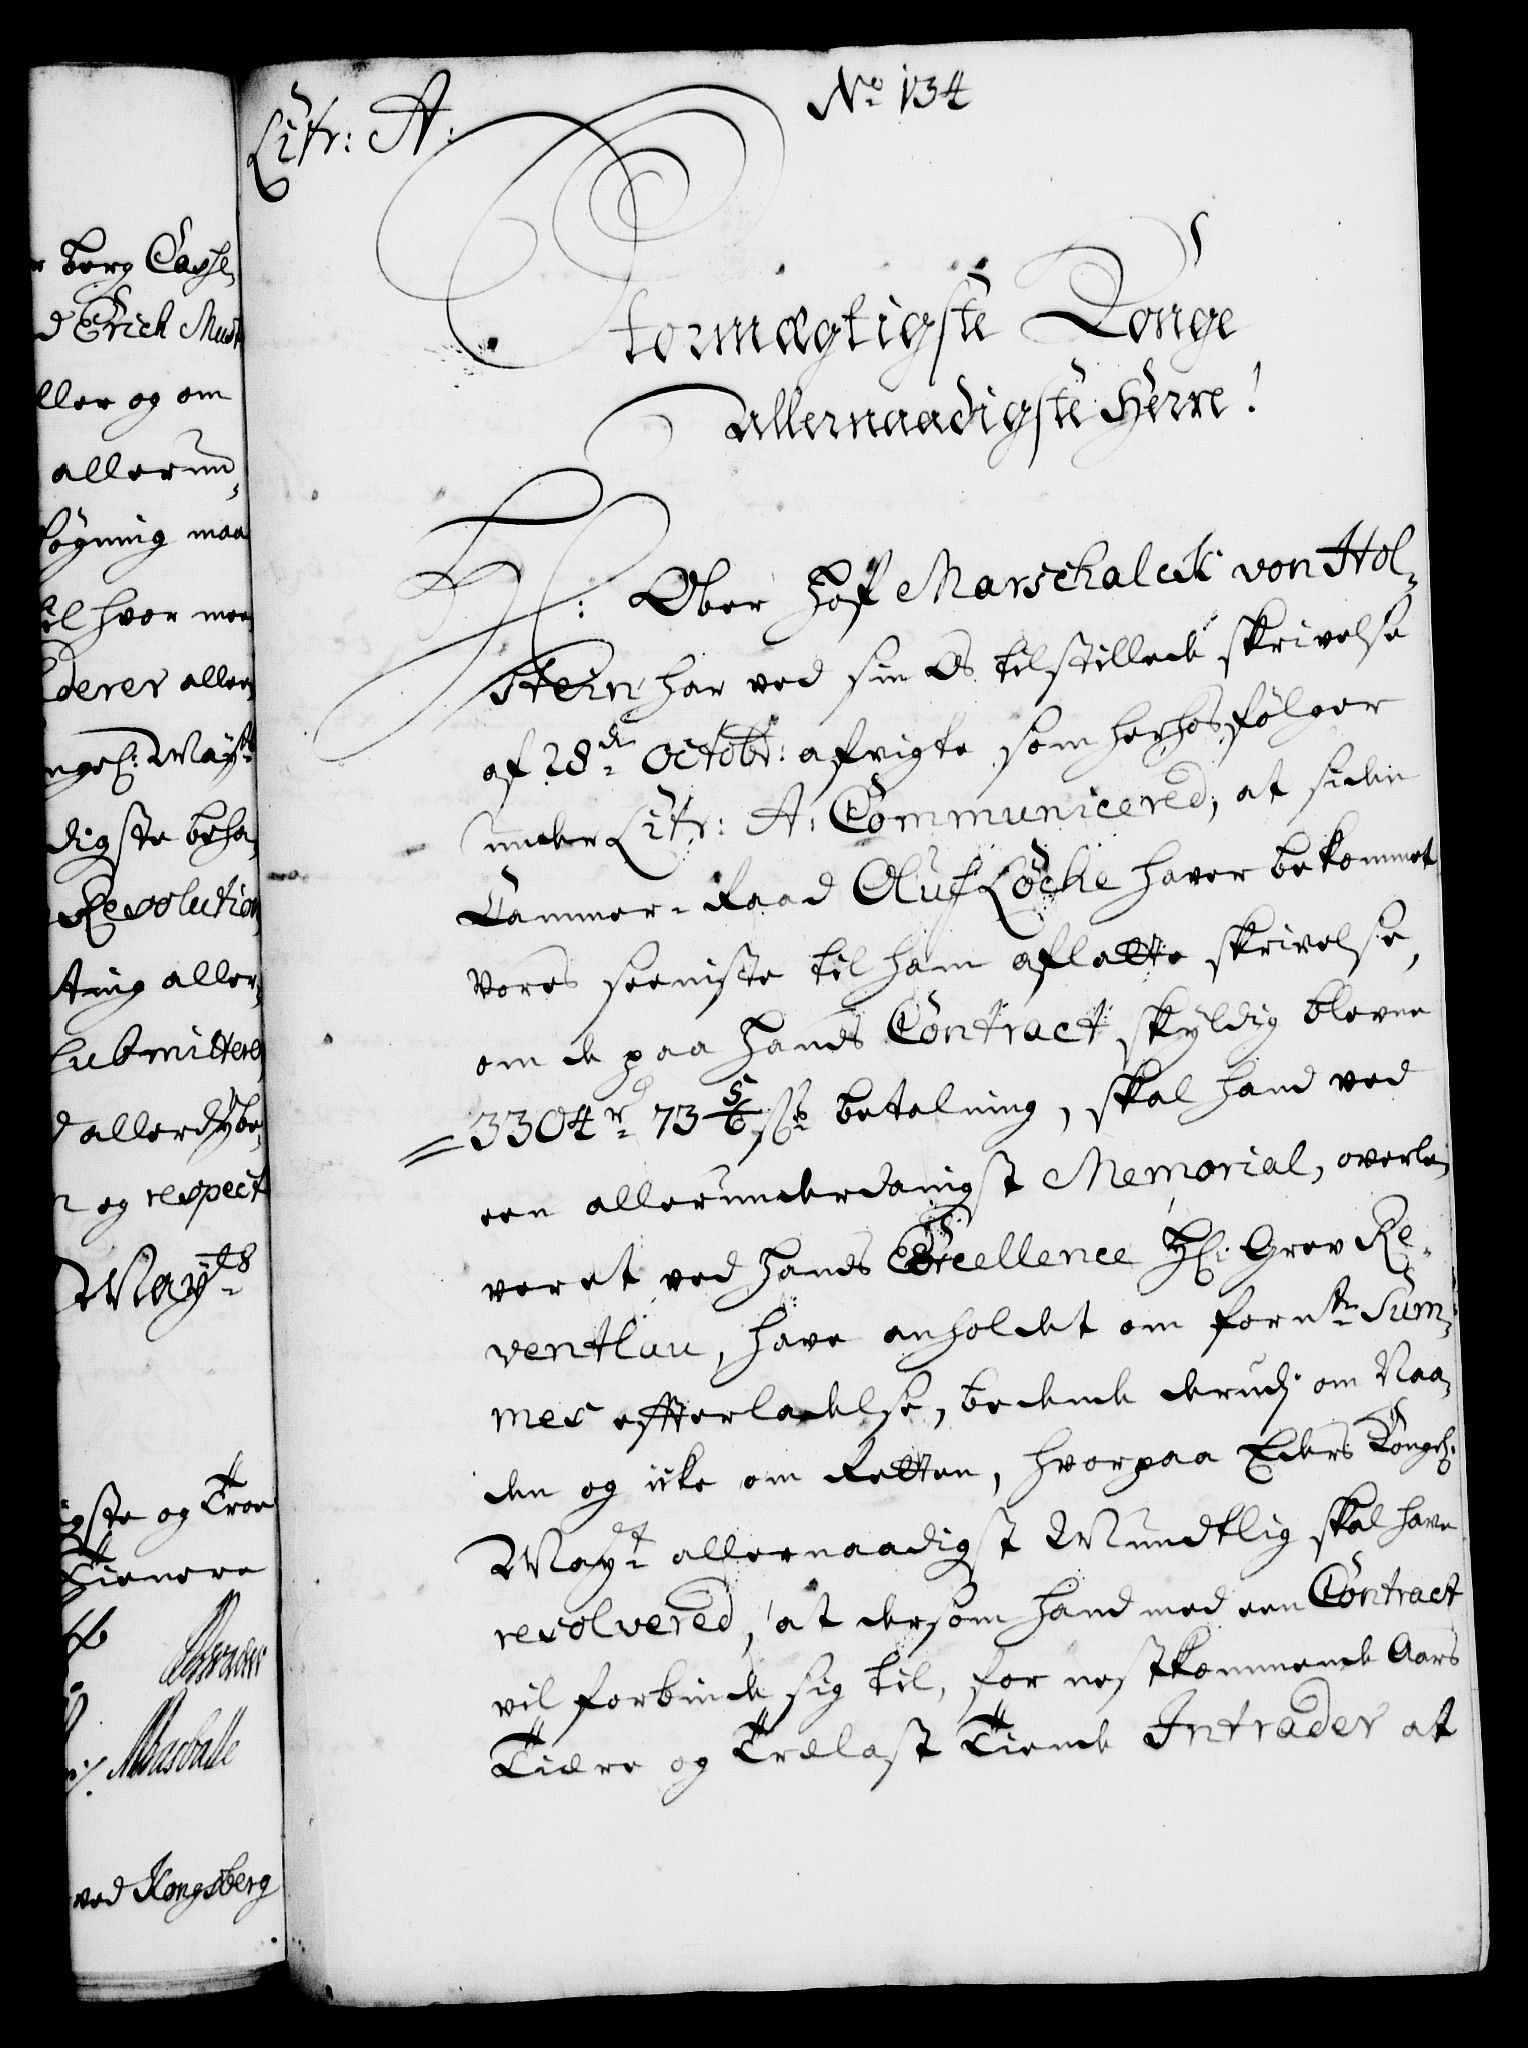 Litr: A:
No 134
Stormægtigste Konge
Allernaadigste Herre!
H: Ober Hof Marschalck von Hol-
stein har ved sin Os tilstillede skrivelse
af 28de Octobr: afvigte som herhos følger
under Litr: A: Communicered, at siden
Cammer-Raad Oluf Löche haver bekommet
Vores seeniste til ham aflatte skrivelse,
om de paa hands Contract skyldig blevne
3304 rd 73 5/6 ss betalning, skal hand ved
een allerunderdanigst Memorial, overle-
veret ved hands Excellence Hr: Grev Re-
ventlau, have anholdet om fornte Sum-
mes efterladelse, bedende derudj om Naa-
den og icke om Retten, hvorpaa Eders Kongel:
Mayt allernaadigst Mundtlig skal have
resolvered, at dersom hand med een Contract
vil forbinde sig til, for nestkommende Aars
Tiære og Trælast Tiende Intrader at
r berg Casse
d Erich Must
ller og om
allerun-
søgning maa
til hvor mee
derer aller
ngel: Mayts
digste beha-
Resolution
ting aller-
submittere
d allerdybe-
n og respect
Mayts
igste og Troe
Tienere
ved Kongsberg